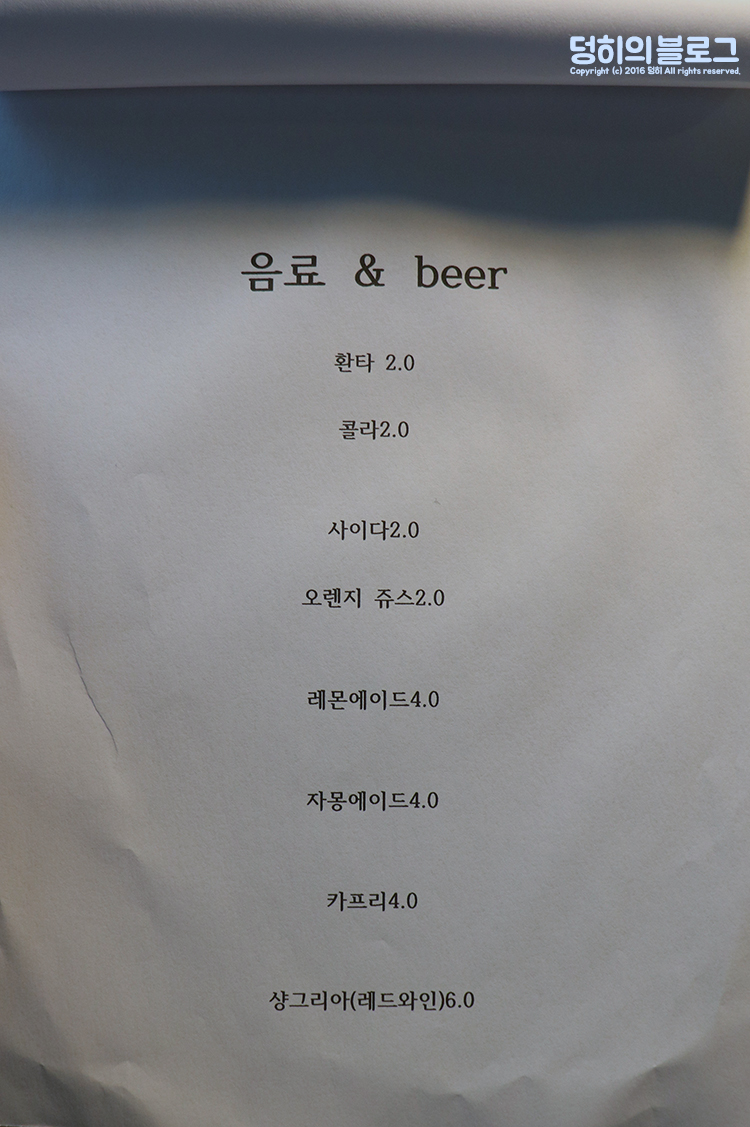 덩히의블로그
Copyright (c) 2016 덩히 All rights reserved.
음료 & beer
환타 2.0
콜라2.0
사이다2.0
오렌지 쥬스2.0
레몬에이드4.0
자몽에이드4.0
카프리4.0
샹그리아(레드와인)6.0